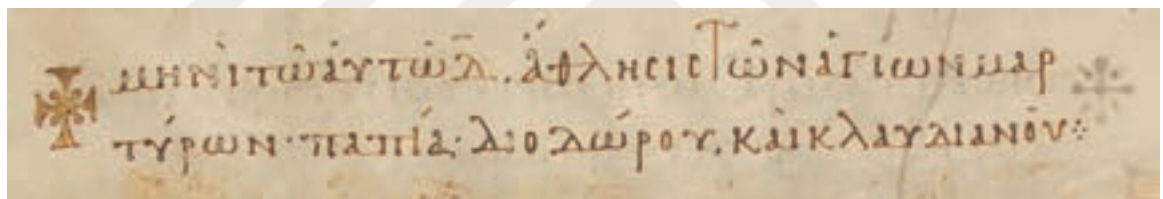 μηνὶ τῶ ἀυτῶ δ̄. ἄθλησις τῶν ἁγίων μαρ
τύρων· παπία· διοδώρου. καὶ κλαυδιανοῦ⁘